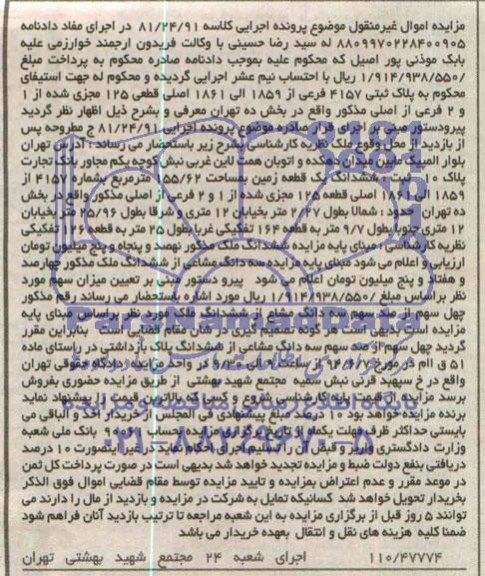 مزایده اموال غیرمنقول موضوع پرونده اجرایی کلاسه ۸۱/۲۴/۹۱ در اجرای مفاد دادنامه
۸۸۰۹۹۷۰۲۲۸۴۰۰۹۰۵ له سید رضا حسینی با وکالت فریدون ارجمند خوارزمی علیه
بابک موذنی پور اصیل که محکوم علیه بموجب دادنامه صادره محکوم به پرداخت مبلغ
۱/۹۱۴/۹۳۸/۵۵۰/ ریال با احتساب نیم عشر اجرایی گردیده و محکوم له جهت استیفای
محکوم به پلاک ثبتی ۴۱۵۷ فرعی از ۱۸۵۹ الی ۱۸۶۱ اصلی قطعه ۱۲۵ مجزی شده از ۱
و ۲ فرعی از اصلی مذکور واقع در بخش ده تهران معرفی و بشرح ذیل اظهار نظر گردید
پیرودستور مبنی بر اجرای قرار صادره موضوع پرونده اجرایی ۸۱/۲۴/۹۱ ج مطروحه پس
از بازدید از محل وقوع ملک نظریه کارشناسی بشرح زیر باستحضار می رساند: آدرس تهران
بلوار المپیک مابین میدان دهکده و اتوبان همت لاین غربی نبش کوچه یکم مجاور بانک تجارت
پلاک ۱۰ ثبت: ششدانگ یک قطعه زمین بمساحت ۱۵۵/۶۲ مترمربع بشماره ۴۱۵۷ از
۱۸۵۹ الی ۱۸۶۱ اصلی قطعه ۱۲۵ مجزی شده از ۱ و ۲ فرعی از اصلی مذکور واقع در بخش
ده تهران حدود: شمالا بطول ۲/۲۷ متر بخیابان ۱۲ متری و شرقا بطول ۲۵/۹۶ متر بخیابان
۱۲ متری جنوبا بطول ۹/۷ متر به قطعه ۱۶۴ تفکیکی غربا بطول ۲۵ متر به قطعه ۱۲۶ تفکیکی
نظریه کارشناسی: مبنای پایه مزایده ششدانگ ملک مذکور نهصد و پنجاه و پنج میلیون تومان
ارزیابی و اعلام می شود مبنای پایه مزایده سه دانگ مشاعی از ششدانگ ملک مذکور چهارصد
و هفتاد و پنج میلیون تومان اعلام می شود پیرو دستور مبنی بر تعیین میزان سهم مورد
نظر براساس مبلغ ۱/۹۱۴/۹۳۸/۵۵۰/ ریال مورد اشاره باستحضار می رساند رقم مذکور
چهل سهم از صد سهم سه دانگ مشاع از ششدانگ ملک مورد نظر براساس مبنای پایه
مزایده است بدیهی است هر گونه تصمیم گیری در شان مقام قضایی است بنابراین مقرر
گردید چهل سهم از صد سهم سه دانگ مشاعی از ششدانگ پلاک بازداشتی در راستای ماده
۵۱ ق اام در مورخ از ساعت الی در واحد مزایده دادگاه حقوقی تهران
واقع در خ سپهبد قرنی نبش سمیه مجتمع شهید بهشتی از طریق مزایده حضوری بفروش
برسد مزایده از بهای کارشناسی شروع و کسی که بالاترین قیمت را پیشنهاد نماید
برنده مزایده خواهد بود ۱۰ درصد مبلغ پیشنهادی فی المجلس از خریدار اخذ و الباقی می
بایستی حداکثر ظرف مهلت یکماه از تاریخ برگزاری مزایده بحساب بانک ملی شعبه
وزارت دادگستری واریز و قبض آن را تسلیم اجرای احکام نماید در غیر اینصورت ۱۰ درصد
دریافتی بنفع دولت ضبط و مزایده تجدید خواهد شد بدیهی است در صورت پرداخت کل ثمن
در موعد مقرر و عدم اعتراض بمزایده و تایید مزایده توسط مقام قضایی اموال فوق الذکر
بخریدار تحویل خواهد شد کسانیکه تمایل به شرکت در مزایده و بازدید از مال را دارند می
توانند ۵ روز قبل از برگزاری مزایده به این شعبه مراجعه تا ترتیب بازدید آنان فراهم شود
ضمنا کلیه هزینه های نقل و انتقال بعهده خریدار می باشد
۱۱۰/۴۷۷۷۴ اجرای شعبه ۲۴ مجتمع شهید بهشتی تهران
۰۲۱-۸۸۳۴۹۶۷۰-۵